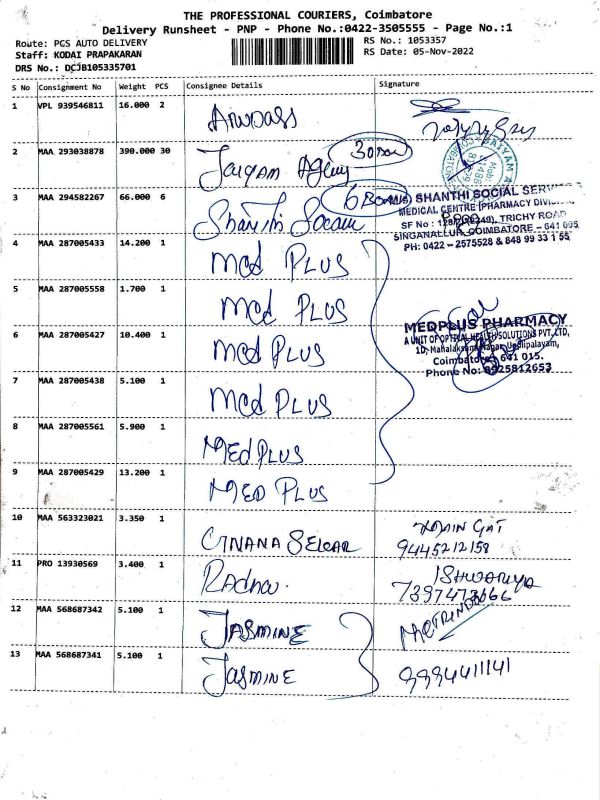 THE PROFESSIONAL COURIERS, Coimbatore
Delivery Runsheet - PNP - Phone No.:0422-3505555 - Page No.:1
Route: PCS AUTO DELIVERY
RS No.: 1053357
Staff: KODAI PRAPAKARAN
RS Date: 05-Nov-2022
DRS No.: DCJB105335701
S No Consignment No Weight PCS Consignee Details Signature
1 VPL 939546811 16.000 2
2 MAA 293038878 390.000 30 Jaiyam Agency 30 Box
3 MAA 294582267 66.000 6 Shanthi Socail 6 Box
M/s SHANTHI SOCIAL SERV
MEDICAL CENTRE (PHARMACY DIVI
TRICHY ROAD
SINGANALLUR, COIMBATORE - 641 005
PH: 0422 - 2575528 & 848 99 33 1 55
4 MAA 287005433 14.200 1 Med PLUS
5 MAA 287005558 1.700 1 Med PLUS
MEDPLUS PHARMACY
A UNIT OF OPTIVAL HEALTH SOLUTIONS PVT. LTD,
6 MAA 287005427 10.400 1 Med PLUS
Coimbatore 641 015.
Phone No: 8925812653
7 MAA 287005438 5.100 1 Med PLUS
8 MAA 287005561 5.900 1 Med PLUS
9 MAA 287005429 13.200 1 MED PLUS
10 MAA 563323021 3.350 1 GNANA SEKAR
9445212158
11 PRO 13930569 3.400 1 Radha
ISHWARIYA
12 MAA 568687342 5.100 1 JASMINE
13 MAA 568687341 5.100 1 JASMINE
9994411141